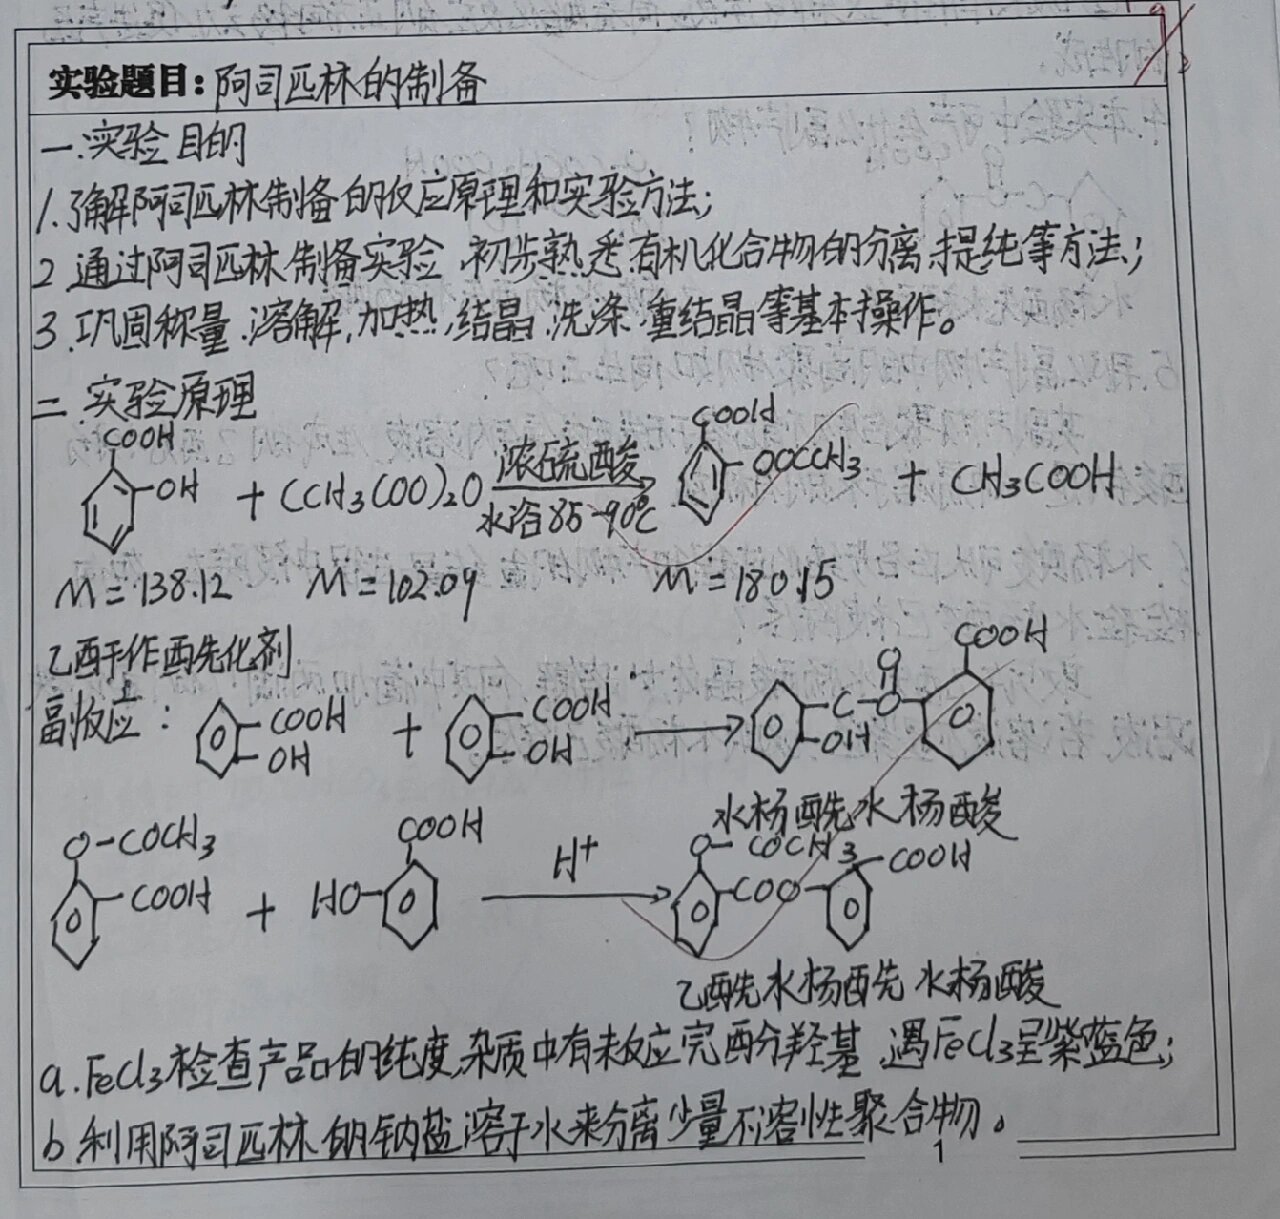 实验题目:阿司匹林的制备
一.实验目的
1.了解阿司匹林制备的反应原理和实验方法;
2.通过阿司匹林制备实验,初步熟悉有机化合物的分离,提纯等方法;
3.巩固称量.溶解,加热,结晶.洗涤.重结晶等基本操作。
二.实验原理
COOH COOH
OH + (CH3COO)2O 浓硫酸 OOCCH3 + CH3COOH
水浴85-90℃
M=138.12 M=102.09 M=180.15
乙酐作酰化剂
副反应: COOH + COOH C-O COOH
OH OH O OH
水杨酰水杨酸
O-COCH3 COOH O-COCH3 COOH
COOH + HO H+ COO
乙酰水杨酰水杨酸
a.FeCl3检查产品的纯度,杂质中有未反应完酚羟基,遇FeCl3呈紫蓝色;
b.利用阿司匹林的钠盐溶于水来分离少量不溶性聚合物。
1